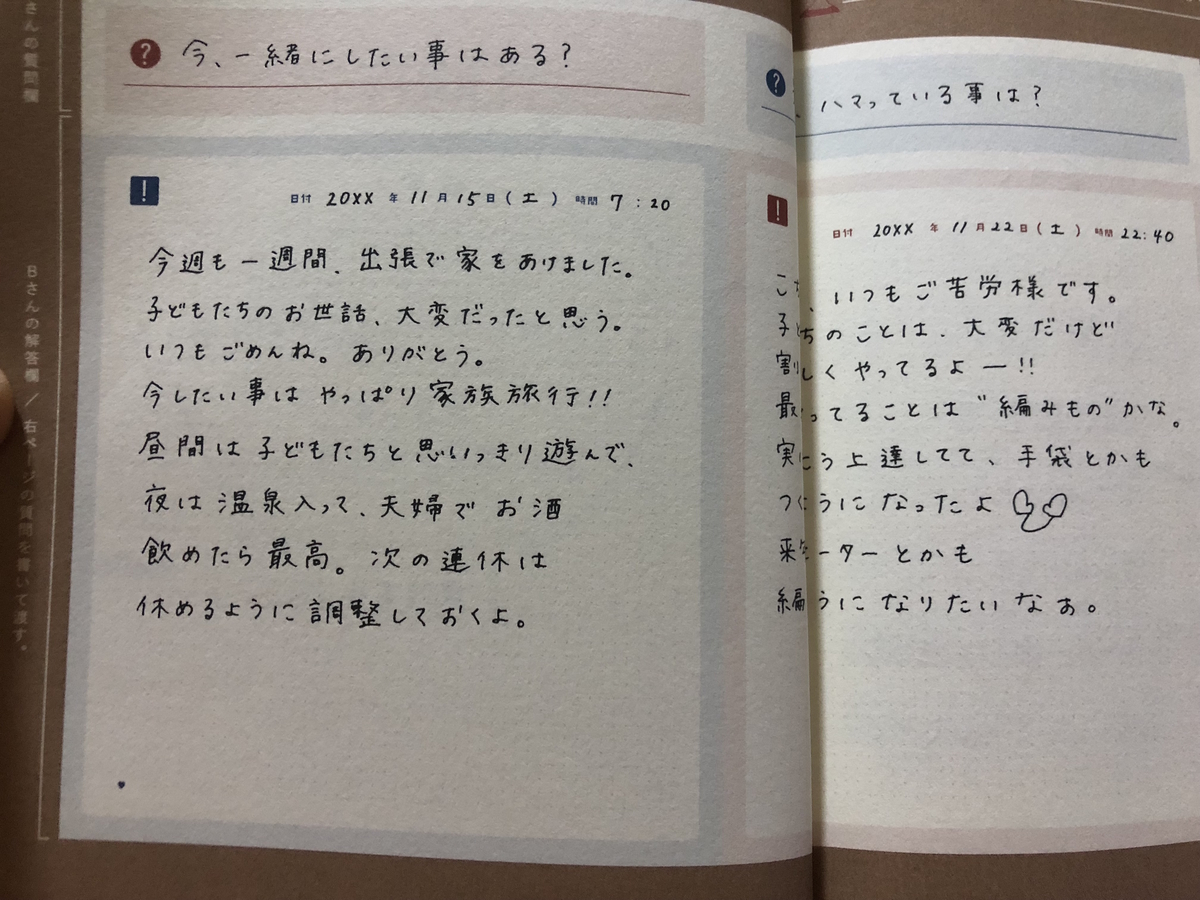 さんの質問欄
Bさんの解答欄 / 右ページの質問を書いて渡す。
? 今、一緒にしたい事はある?
! 日付 20XX 年 11 月 15 日 ( 土 ) 時間 7 : 20
今週も一週間、出張で家をあけました。
子どもたちのお世話、大変だったと思う。
いつもごめんね。ありがとう。
今したい事はやっぱり家族旅行!!
昼間は子どもたちと思いっきり遊んで、
夜は温泉入って、夫婦でお酒
飲めたら最高。次の連休は
休めるように調整しておくよ。
? 、ハマっている事は?
! 日付 20XX 年 11 月 22 日 ( 土 ) 時間 22:40
こ 、いつもご苦労様です。
子 ちのことは、大変だけど
割 しくやってるよー!!
最 ってることは"編みもの"かな。
実 う上達してて、手袋とかも
つ うになったよ
来 ーターとかも
編 うになりたいなぁ。